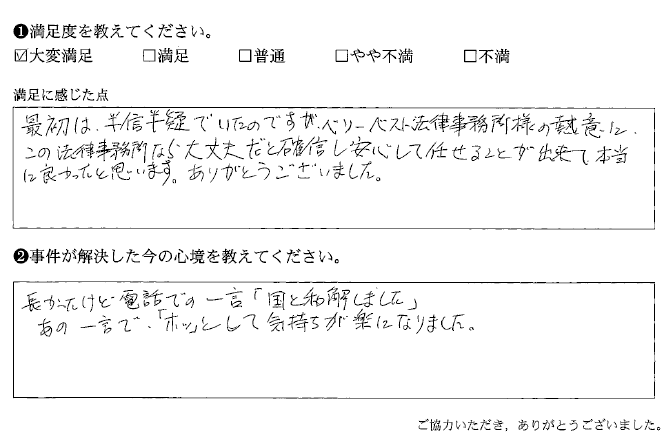 ❶満足度を教えてください。
☑大変満足 □満足 □普通 □やや不満 □不満
満足に感じた点
最初は、半信半疑でいたのですが、ベリーベスト法律事務所様の熱意に、
この法律事務所なら大丈夫だと確信し安心して任せることが出来て本当
に良かったと思います。ありがとうございました。
❷事件が解決した今の心境を教えてください。
長かったけど電話での一言「国と和解しました」
あの一言で、「ホッ」として気持ちが楽になりました。
ご協力いただき，ありがとうございました。